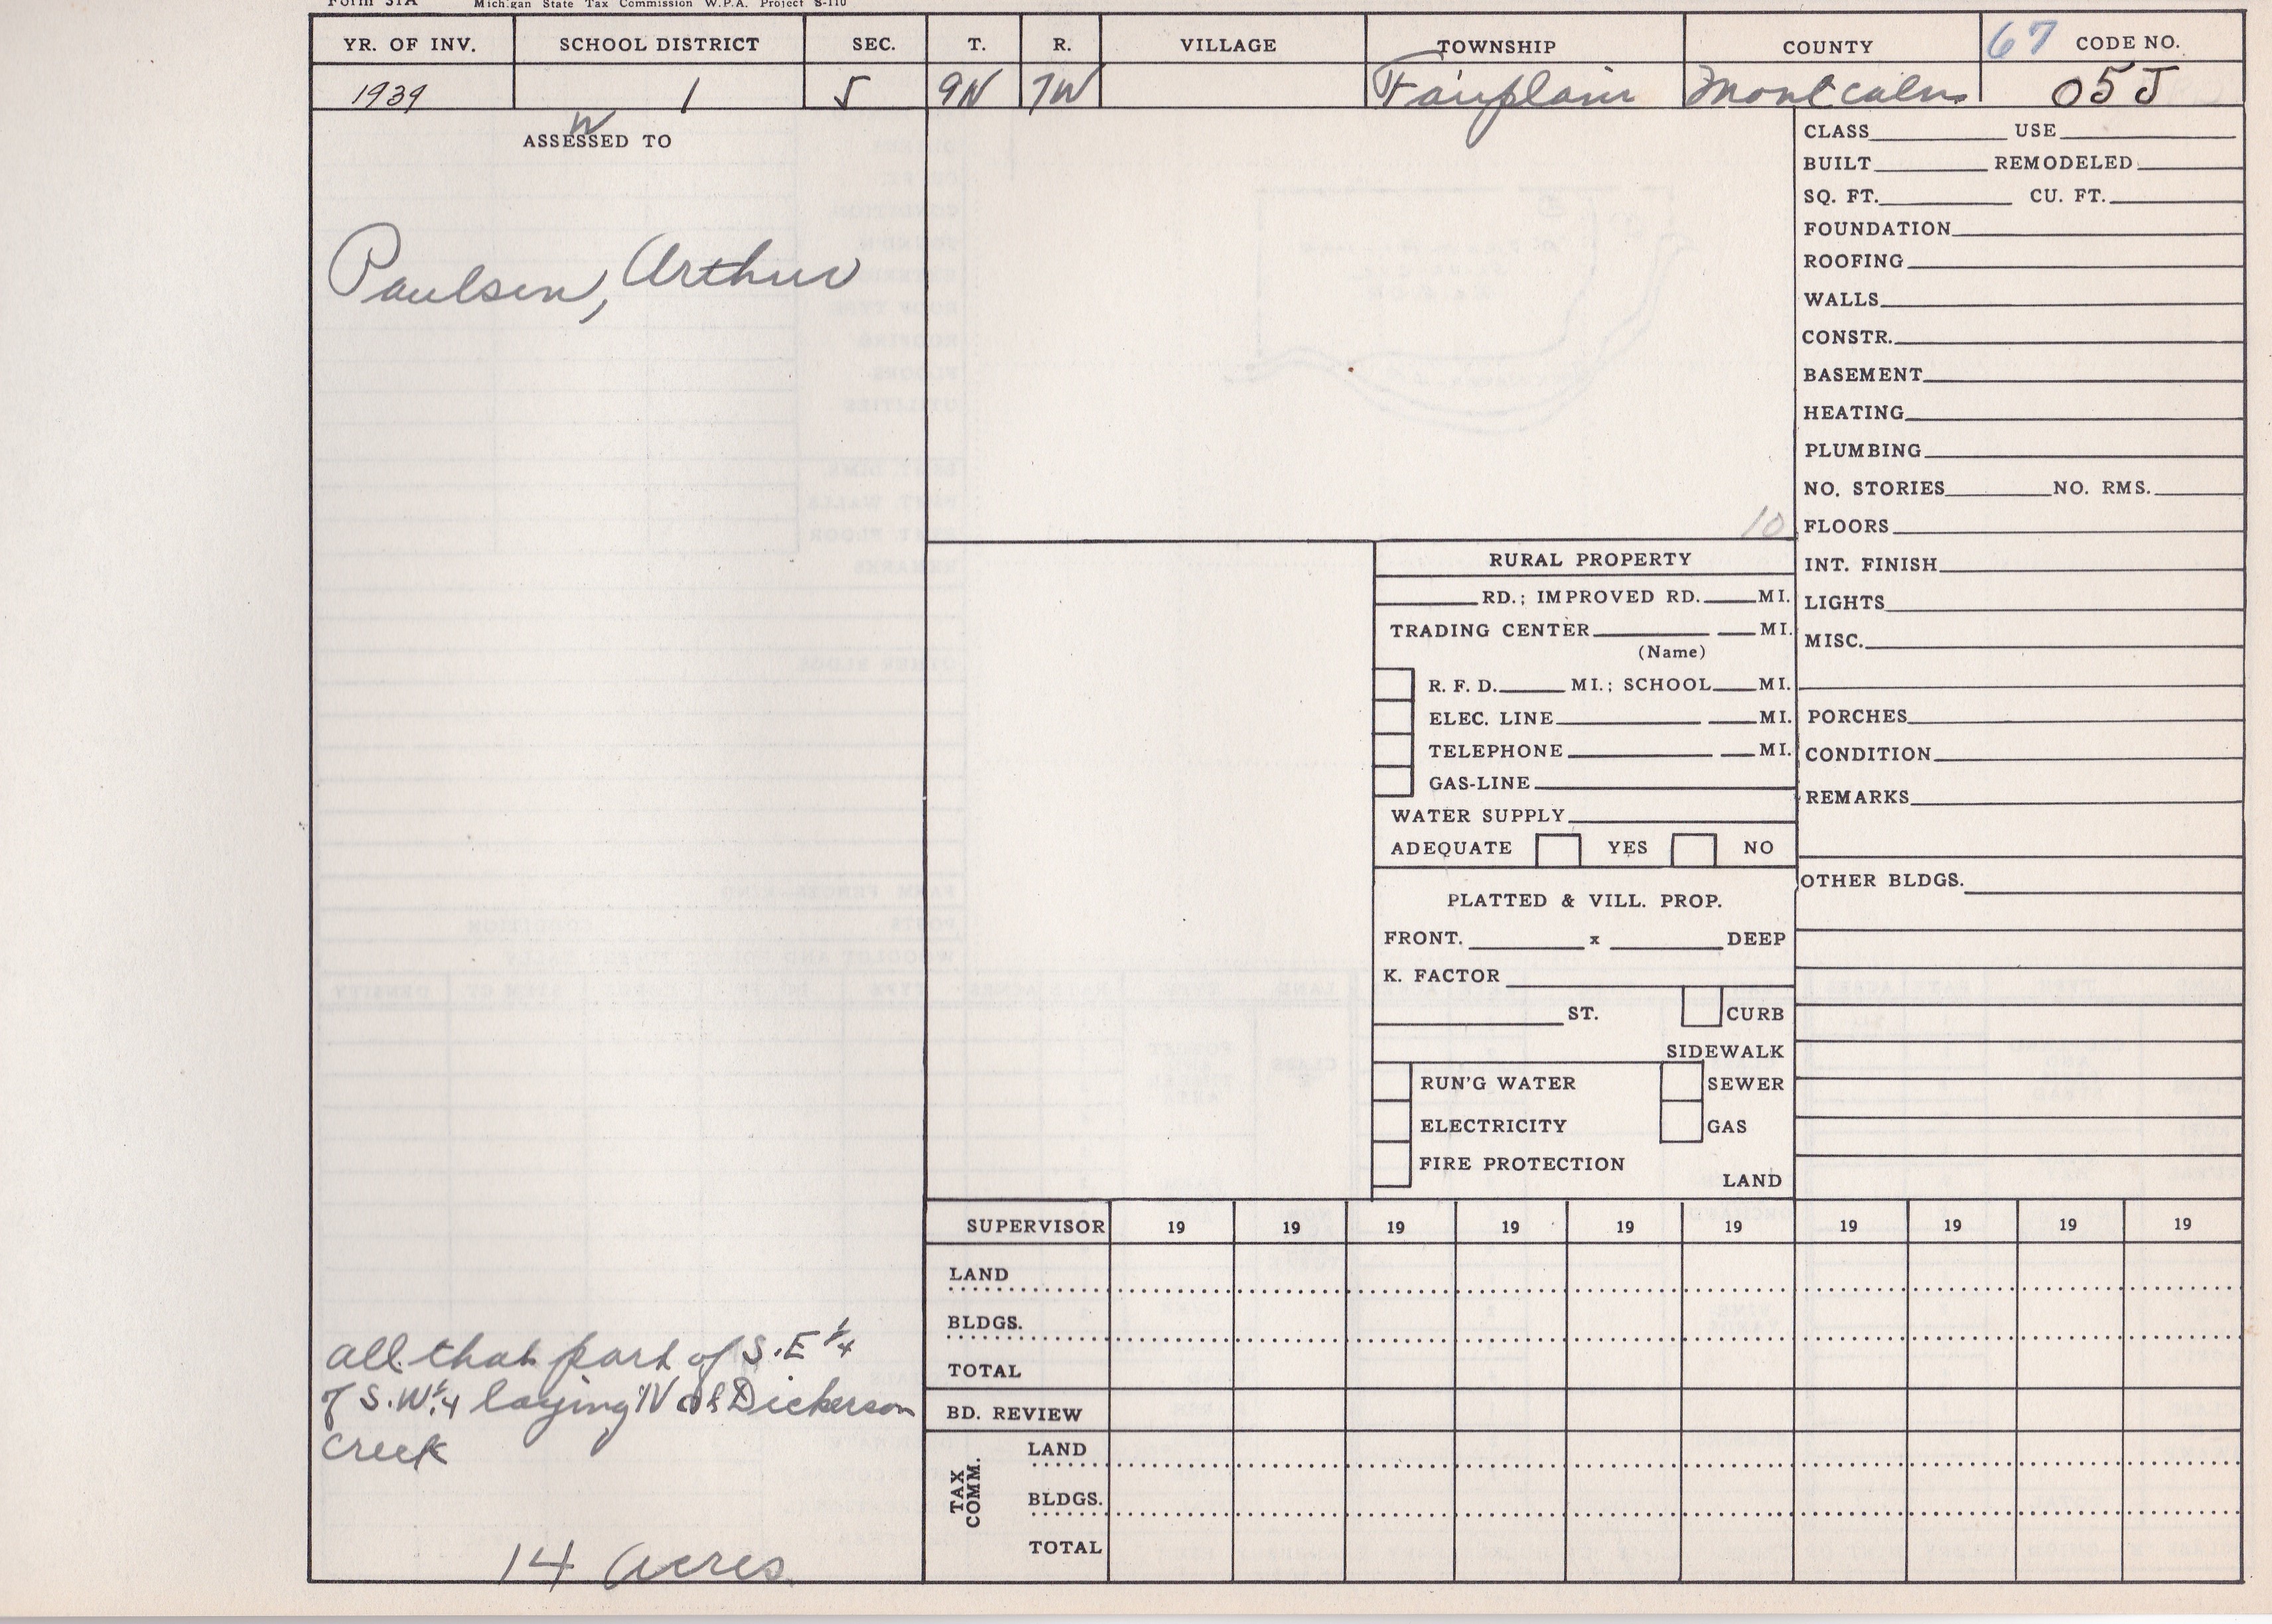 Form 31A Michigan State Tax Commission W.P.A. Project S-110
YR. OF INV. SCHOOL DISTRICT SEC. T. R. VILLAGE TOWNSHIP COUNTY 67 CODE NO.
1939 1 5 9N 7W Fairplain Montcalm 05J
W
ASSESSED TO
Paulsen, Arthur
all that part of S.E 1/4
of S.W. 1/4 laying N of Dickerson
Creek
14 Acres
10
RURAL PROPERTY
RD.; IMPROVED RD. MI.
TRADING CENTER MI.
(Name)
R. F. D. MI.; SCHOOL MI.
ELEC. LINE MI.
TELEPHONE MI.
GAS-LINE
WATER SUPPLY
ADEQUATE YES NO
PLATTED & VILL. PROP.
FRONT. x DEEP
K. FACTOR
ST. CURB
SIDEWALK
RUN'G WATER SEWER
ELECTRICITY GAS
FIRE PROTECTION
LAND
CLASS USE
BUILT REMODELED
SQ. FT. CU. FT.
FOUNDATION
ROOFING
WALLS
CONSTR.
BASEMENT
HEATING
PLUMBING
NO. STORIES NO. RMS.
FLOORS
INT. FINISH
LIGHTS
MISC.
PORCHES
CONDITION
REMARKS
OTHER BLDGS.
SUPERVISOR 19 19 19 19 19 19 19 19 19 19
LAND
BLDGS.
TOTAL
BD. REVIEW
TAX COMM.
LAND
BLDGS.
TOTAL